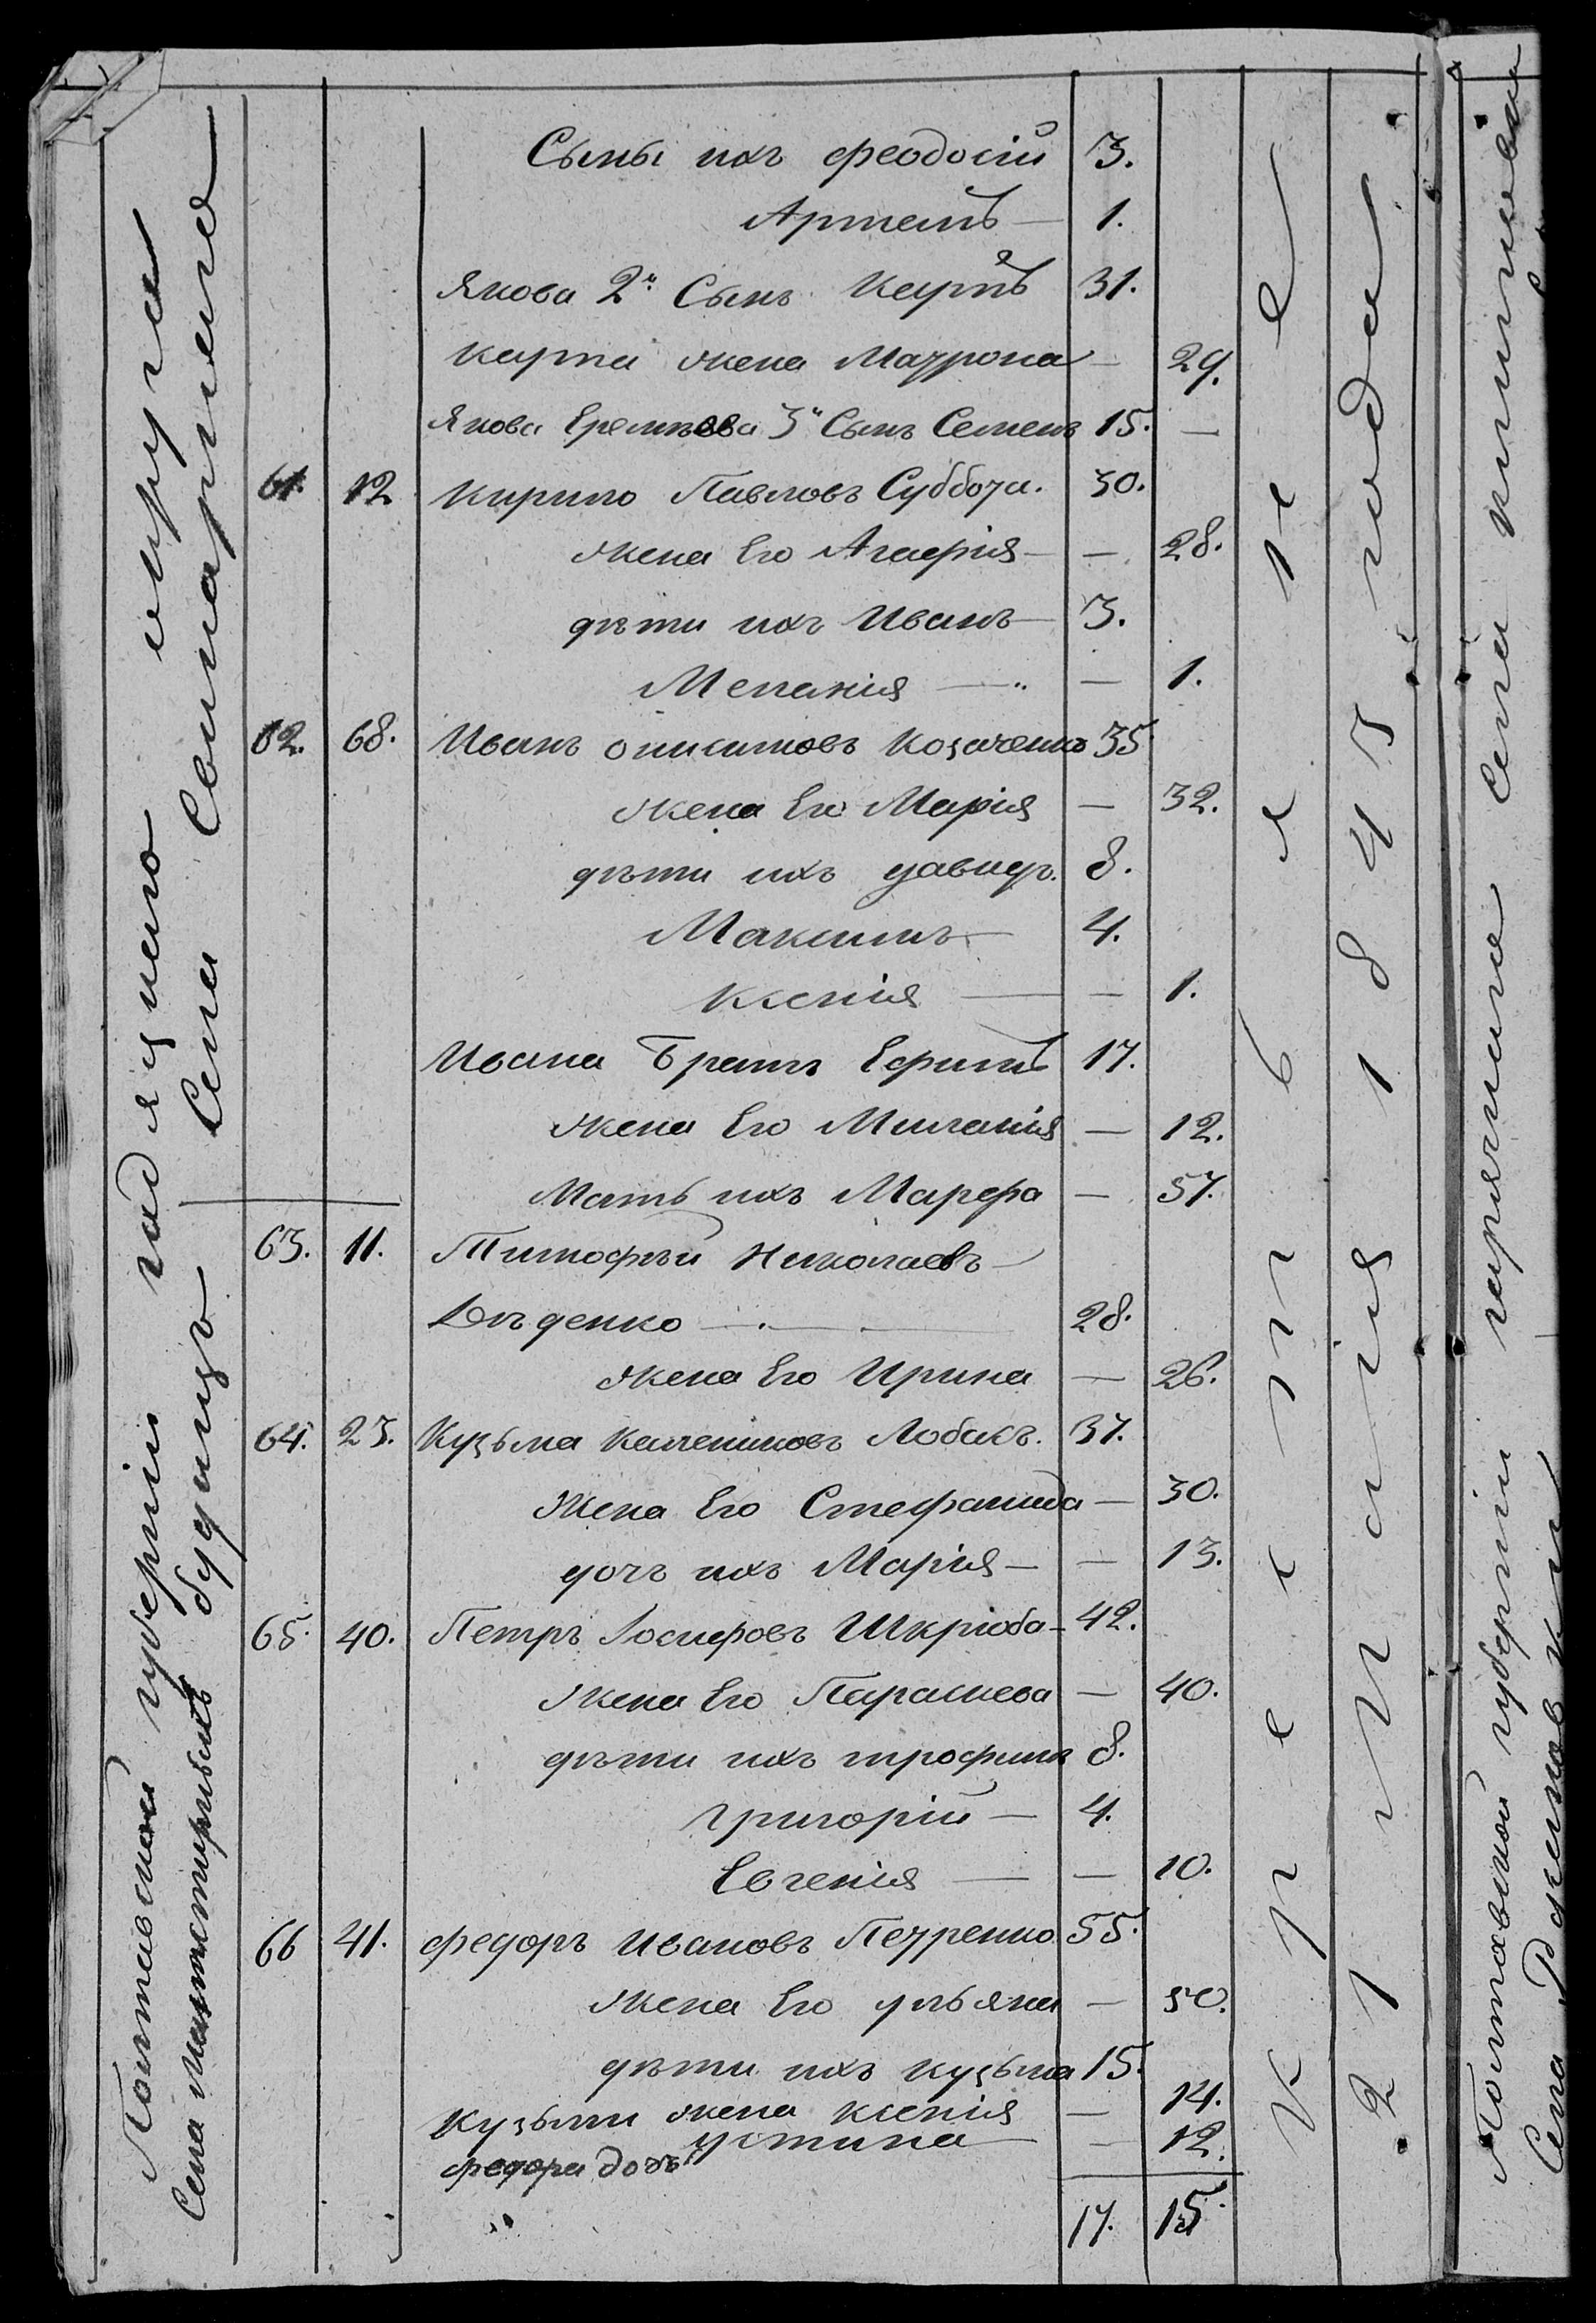 Полтавской губерніи гадяцкаго округа
Села будищъ Села
Сыны ихъ Феодосій 3.
Артемъ — 1.
Якова 2й Сынъ Карпъ 31.
Карпа жена Матрона — 29.
Якова Еремѣева 3й Сынъ Семенъ 15. —
61. 12 Кирило Павловъ Суббота. 30.
жена Его Агафія — — 28.
дѣти ихъ Иванъ — 3.
Меланія — — 1.
62. 68. Иванъ Онисимовъ Козаченко 35
жена Его Марія — 32.
дѣти ихъ Давидъ. 8.
Максимъ — 4.
Ксенія — — 1.
Ивана Братъ Ефимъ 17.
жена Его Миланія — 12.
Мать ихъ Марфа — 57.
63. 11. Тимофѣй Николаевъ —
Дѣденко — 28.
жена Его Ирина — 26.
64. 23. Кузьма Калениковъ Лобакъ. 37.
Жена Его Стефанида — 30.
дочь ихъ Марія — — 13.
65. 40. Петръ Іосифовъ Шкрюба — 42.
Жена Его Параскева — 40.
дѣти ихъ трофимъ 8.
григорій — 4.
Евгенія — — 10.
66 41. Федоръ Ивановъ Петренко 55.
жена Его ульяна — 50.
дѣти ихъ кузьма 15.
Кузьмы жена ксенія — 14.
Федора дочь устина — — 12.
17. 15.
21 Маія 1843 года
Полтавской губерніи Села
Села